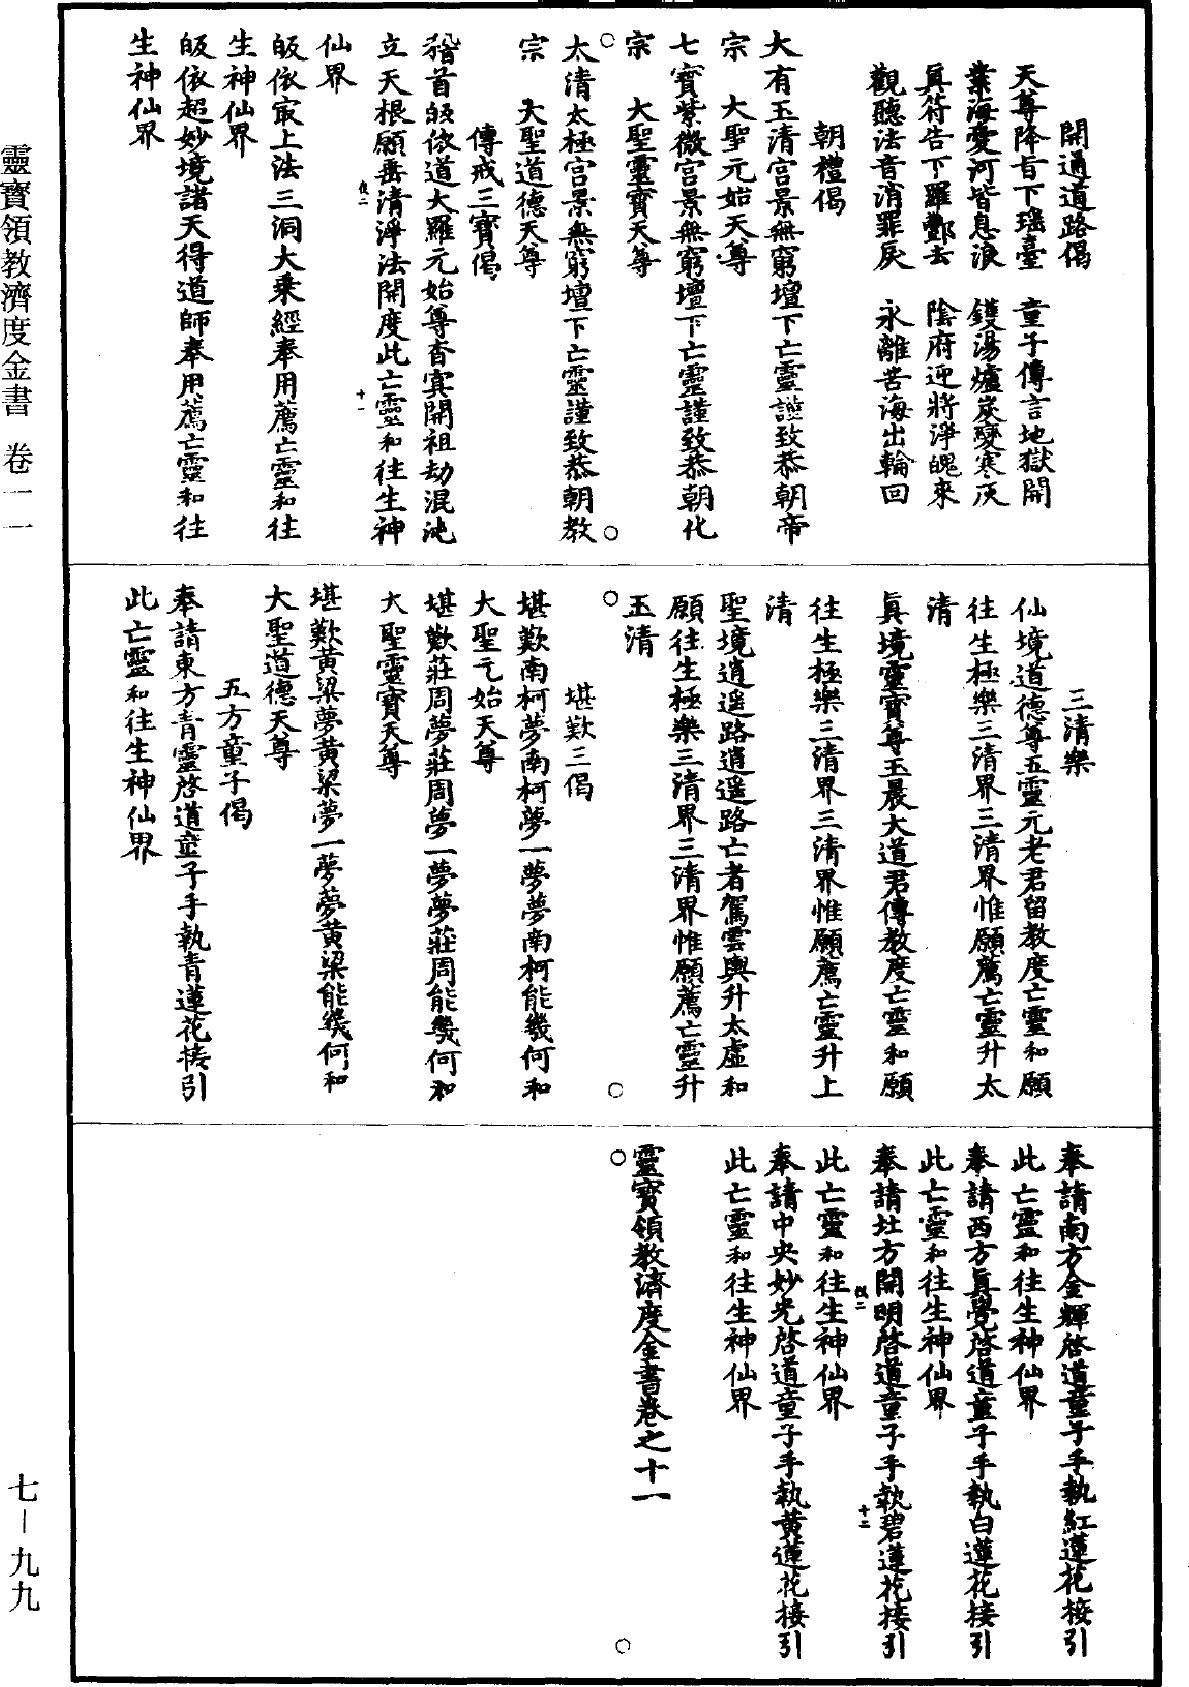 開通道路偈
天尊降旨下瑶臺　童子傳言地獄開
業海愛河皆息浪　鑊湯爐炭變寒灰
眞符告下羅酆去　陰府迎將淨魄來
觀聽法音消罪戾　永離苦海出輪回
朝禮偈
大有玉清宫景無窮壇下亡靈謹致恭朝帝
宗　大聖元始天尊
七寳紫微宫景無窮壇下亡靈謹致恭朝化
宗　大聖靈寳天尊
太清太極宫景無窮壇下亡靈謹致恭朝教
宗　大聖道德天尊
傳戒三寳偈
稽首皈依道大羅元始尊杳冥開祖劫混沌
立天根願垂清淨法開度此亡靈和往生神
仙界
皈依㝡上法三洞大乘經奉用薦亡靈和往
生神仙界
皈依超妙境諸天得道師奉用薦亡靈和往
生神仙界
三清樂
仙境道德尊五靈元老君留教度亡靈和願
往生極樂三清界三清界惟願薦亡靈升太
清
眞境靈寳尊玉晨大道君傳教度亡靈和願
往生極樂三清界三清界惟願薦亡靈升上
清
聖境逍遥路逍遥路亡者駕雲輿升太虚和
願往生極樂三清界三清界惟願薦亡靈升
玉清
堪歎三偈
堪歎南柯夢南柯夢一夢夢南柯能幾何和
大聖元始天尊
堪歎莊周夢莊周夢一夢夢莊周能幾何和
大聖靈寳天尊
堪歎黄粱夢黄粱夢一夢夢黄粱能幾何和
大聖道德天尊
五方童子偈
奉請東方青靈啓道童子手執青蓮花接引
此亡靈和往生神仙界
奉請南方金輝啓道童子手執紅蓮花接引
此亡靈和往生神仙界
奉請西方眞覺啓道童子手執白蓮花接引
此亡靈和往生神仙界
奉請北方開明啓道童子手執碧蓮花接引
此亡靈和往生神仙界
奉請中央妙光啓道童子手執黄蓮花接引
此亡靈和往生神仙界
靈寳領教濟度金書卷之十一
靈寶領教濟度金書　卷一一
七—九九
十一
十二